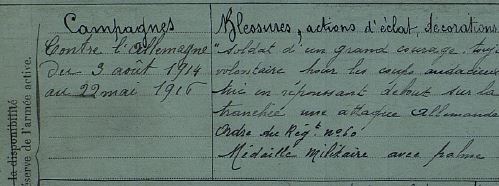 Campagnes
Contre l'Allemagne
du 3 août 1914
au 22 mai 1916
Blessures, actions d'éclat, décorations
"Soldat d'un grand courage, touj
volontaire pour les coups audacieux
tué en repoussant debout sur la
tranchée une attaque allemande
Ordre du Régt. no 60
Médaille militaire avec palme
la disponibilité
éserve de l'armée active.